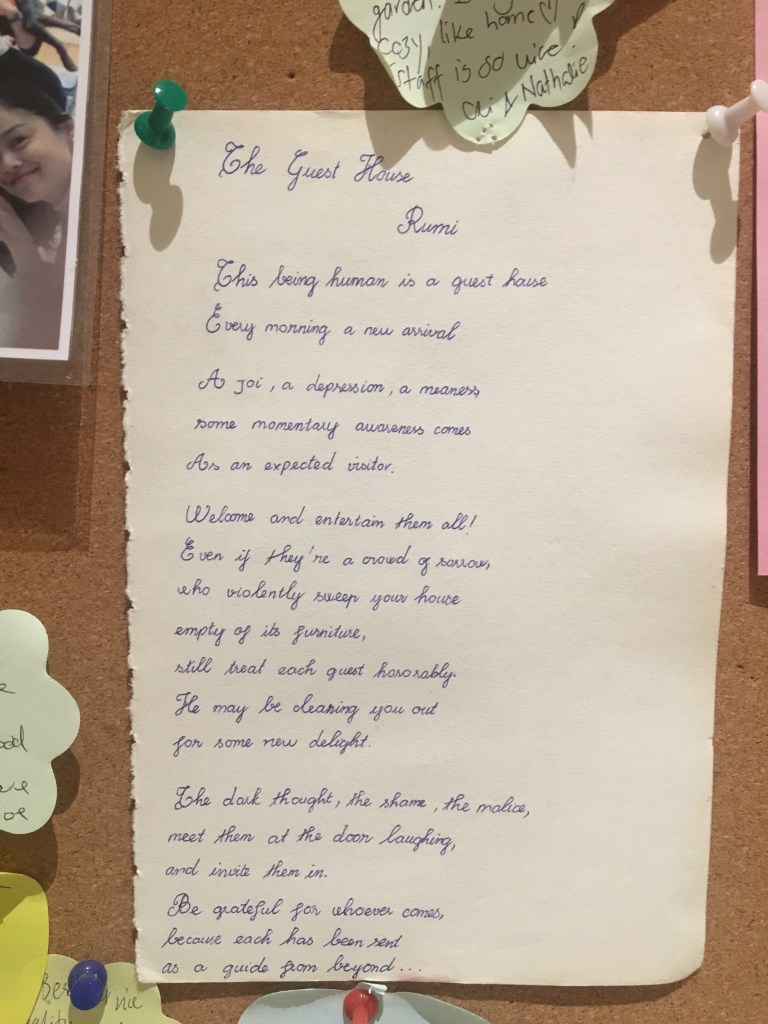 garden!
cozy, like home
Staff is so nice!
& Nathalie
The Guest House
Rumi
This being human is a guest house
Every morning a new arrival
A joi, a depression, a meaness
some momentary awareness comes
As an expected visitor.
Welcome and entertain them all!
Even if they're a crowd of sorrow,
who violently sweep your house
empty of its furniture,
still treat each guest honorably.
He may be cleaning you out
for some new delight.
The dark thought, the shame, the malice,
meet them at the door laughing,
and invite them in.
Be grateful for whoever comes,
because each has been sent
as a guide from beyond...